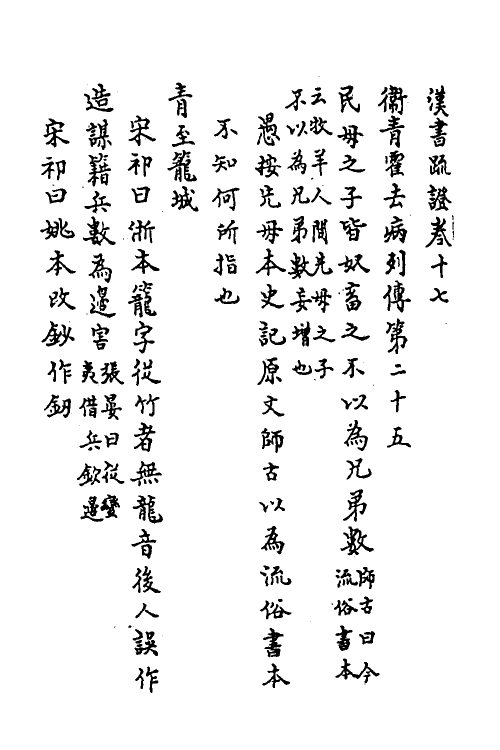 漢書疏證卷十七
衞青霍去病列傳第二十五
民母之子皆奴畜之不以為兄弟數師古曰今流俗書本
云牧羊人間先母之子不以為兄弟數妄增也
愚按先母本史記原文師古以為流俗書本
不知何所指也
青至籠城
宋祁曰浙本籠字從竹者無龍音後人誤作
造謀籍兵數為邊害張晏曰從蠻夷借兵欽邊
宋祁曰姚本改鈔作釰